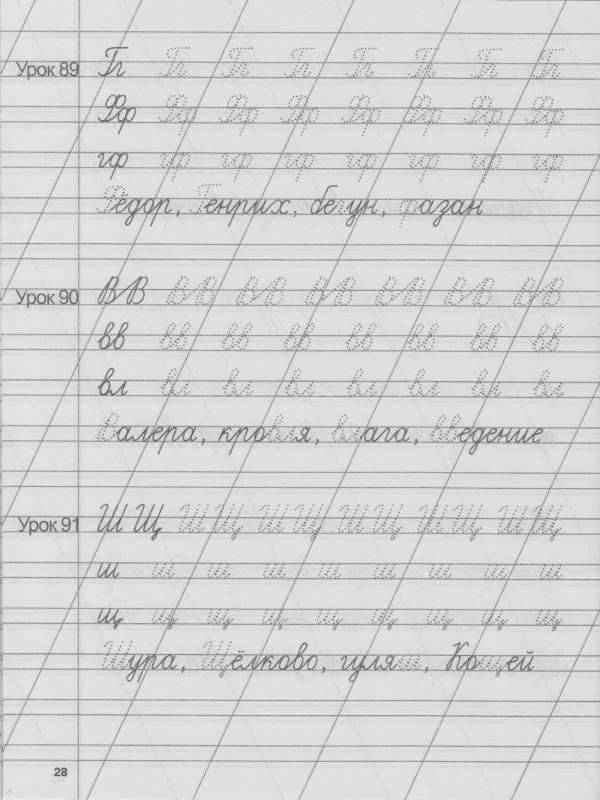 Урок 89 Гг Гг Гг Гг Гг Гг Гг Гг
Фф Фф Фф Фф Фф Фф Фф Фф
гф гф гф гф гф гф гф гф
Фёдор, Генрих, бегун, фазан
Урок 90 ВВ ВВ ВВ ВВ ВВ ВВ ВВ
вв вв вв вв вв вв вв вв
вл вл вл вл вл вл вл вл
Валера, кровля, влага, введение
Урок 91 Ш Щ Ш Щ Ш Щ Ш Щ Ш Щ Ш Щ
ш ш ш ш ш ш ш ш ш
щ щ щ щ щ щ щ щ щ
Шура, Щёлково, гуляш, Кощей
28